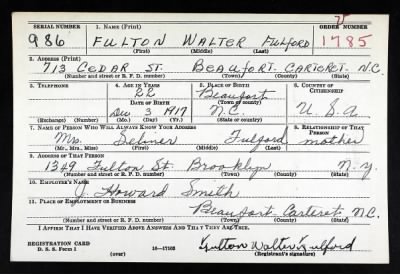 SERIAL NUMBER 1. NAME (Print) ORDER NUMBER
986 FULTON WALTER FULFORD 1785
(First) (Middle) (Last)
2. ADDRESS (Print)
713 CEDAR ST. BEAUFORT. CARTERET. N.C.
(Number and street or R. F. D. number) (Town) (County) (State)
3. TELEPHONE 4. AGE IN YEARS 5. PLACE OF BIRTH 6. COUNTRY OF CITIZENSHIP
22 Beaufort
DATE OF BIRTH (Town or county)
Dec 3 1917 N.C. U.S.A
(Exchange) (No.) (Mo.) (Day) (Yr.) (State or country)
7. NAME OF PERSON WHO WILL ALWAYS KNOW YOUR ADDRESS 8. RELATIONSHIP OF THAT PERSON
Mrs. Fulford mother
(Mr., Mrs., Miss) (First) (Middle) (Last)
9. ADDRESS OF THAT PERSON
1349 Fulton St. Brooklyn N.Y.
(Number and street or R. F. D. number) (Town) (County) (State)
10. EMPLOYER'S NAME
J. Howard Smith
11. PLACE OF EMPLOYMENT OR BUSINESS
Beaufort Carteret N.C.
(Number and street or R. F. D. number) (Town) (County) (State)
I AFFIRM THAT I HAVE VERIFIED ABOVE ANSWERS AND THAT THEY ARE TRUE.
REGISTRATION CARD
D. S. S. Form 1 16—17105 Fulton Walter Fulford
(over) (Registrant's signature)